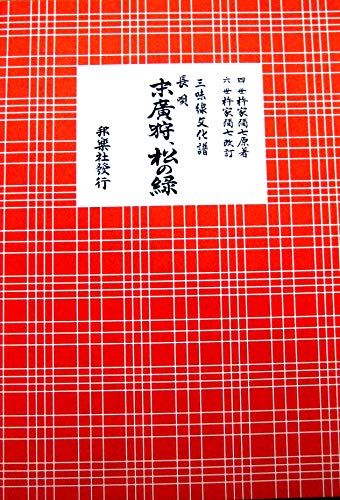 四世杵家彌七原著
六世杵家彌七改訂
三味線文化譜
長唄
末廣狩、松の緑
邦樂社發行